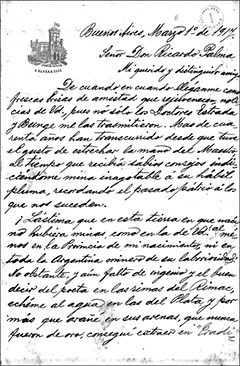 Buenos Aires, Marzo 1º de 1914.
Señor Don Ricardo Palma
Mi querido y distinguido amigo
De cuando en cuando lléganme como
frescas brisas de amistad que rejuvenecen, no-
ticias de Vd., pues no sólo los Doctores Estrada
y Bunge me las trasmitieron. Mas de cua-
renta años han transcurrido desde que tuve
el gusto de estrechar la mano del Maestro,
al tiempo que recibía sabios consejos indi-
cándome mina inagotable á su hábil
pluma, recordando el pasado pátrio á los
que nos suceden.
¡Lástima que en esta tierra en que na
no hubiera minas, como en la de Vd., al me-
nos en la Provincia de mi nacimiento, ni en
toda la Argentina minero de su laboriosidad!
No obstante, y aún falto de ingenio y el buen
decir del poeta en las rimas del Rimac,
echéme al agua en las del Plata, y por
más que arañé en sus arenas, que nunca
fueron de oro, conseguí extraer en "Tradi